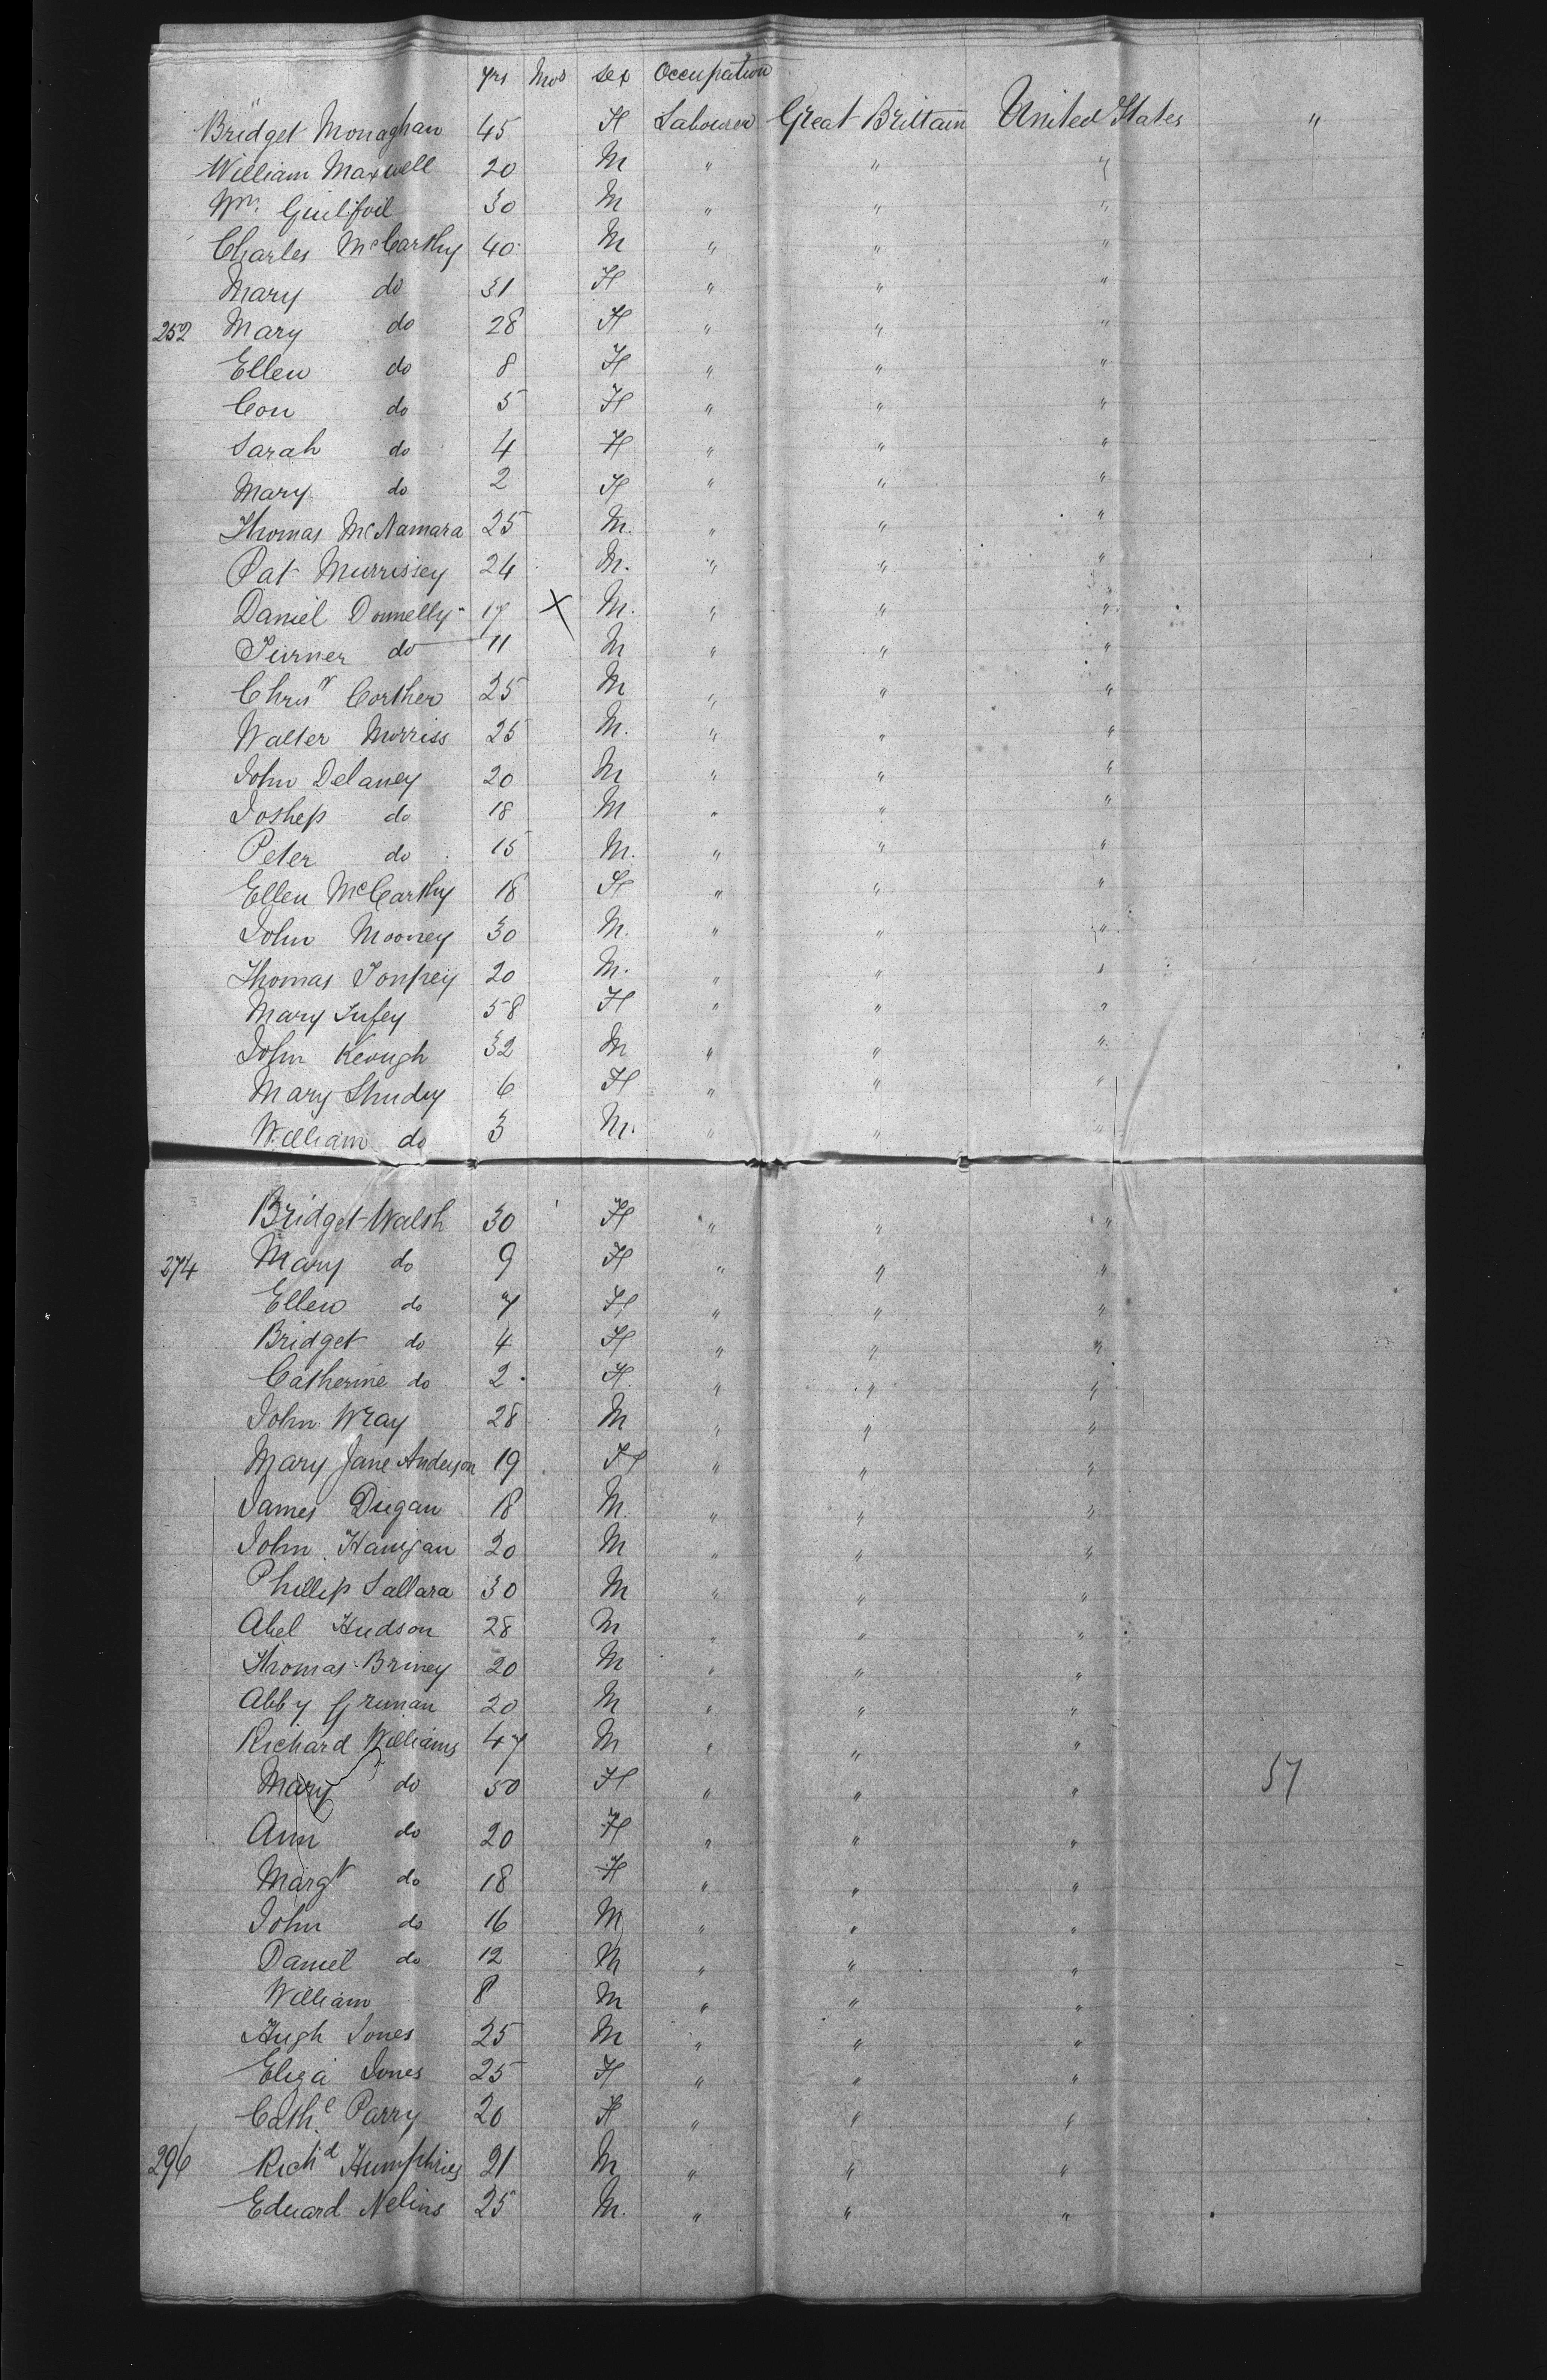 yrs Mos Sex Occupation
Bridget Monaghan 45 F Labourer Great Brittain United States "
William Maxwell 20 M " " "
Wm. Guilifoil 30 M " " "
Charles McCarthy 40 M " " "
Mary do 31 F " " "
252 Mary do 28 F " " "
Ellen do 8 F " " "
Con do 5 F " " "
Sarah do 4 F " " "
Mary do 2 F " " "
Thomas McNamara 25 M. " " "
Pat Murrissey 24 M. " " "
Daniel Donnelly 17 X M. " " "
Turner do 11 M " " "
Chrisr Corther 25 M " " "
Walter Morriss 25 M. " " "
John Delaney 20 M " " "
Joshep do 18 M " " "
Peter do 15 M. " " "
Ellen McCarthy 18 F " " "
John Mooney 30 M. " " "
Thomas 20 M. " " "
Mary 58 F " " "
John Keough 32 M " " "
Mary 6 F " " "
William do 3 M. " " "
Bridget Walsh 30 F " " "
274 Mary do 9 F " " "
Ellen do 7 F " " "
Bridget do 4 F " " "
Catherine do 2 F. " " "
John Wray 28 M " " "
Mary Jane Anderson 19 F " " "
James Dugan 18 M. " " "
John Hanigan 20 M " " "
Phillip Sallara 30 M " " "
Abel Hudson 28 M " " "
Thomas Briney 20 M " " "
Abby 20 M " " "
Richard Williams 47 M " " "
Mary do 50 F " " " 57
Ann do 20 F " " "
Margt do 18 F " " "
John do 16 M " " "
Daniel do 12 M " " "
William 8 M " " "
Hugh Jones 25 M " " "
Eliza Jones 25 F " " "
Cathe. Parry 20 F " " "
296 Richd Humphries 21 M " " "
Eduard Nelins 25 M. " " "